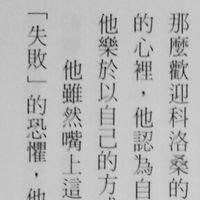 那麼歡迎科洛桑的
的心裡，他認為自
他樂於以自己的方式
他雖然嘴上這
「失敗」的恐懼，他